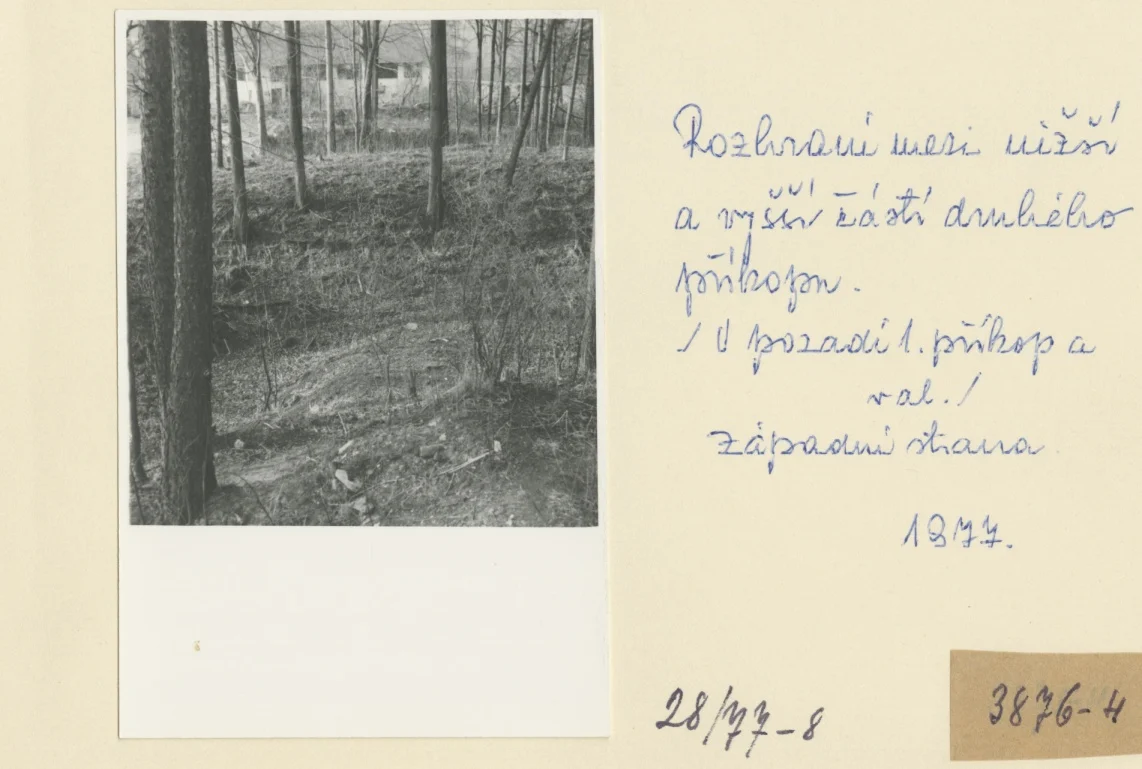 Rozhraní mezi nižší
a vyšší částí druhého
příkopu.
/ V pozadí 1. příkop a
val. /
Západní strana
1977.
28/77-8
3876-4